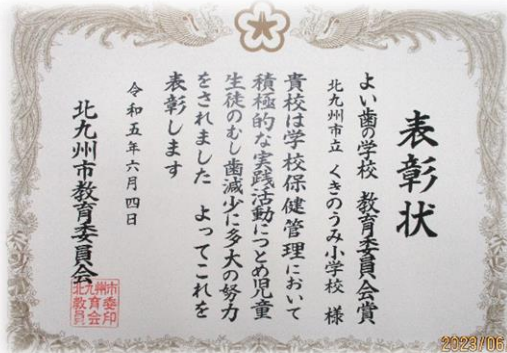 表彰状
よい歯の学校 教育委員会賞
北九州市立 くきのうみ小学校 様
貴校は学校保健管理において
積極的な実践活動につとめ児童
生徒のむし歯減少に多大の努力
をされました よってこれを
表彰します
令和五年六月四日
北九州市教育委員会
北九州市
教育委
員会印
2023/06